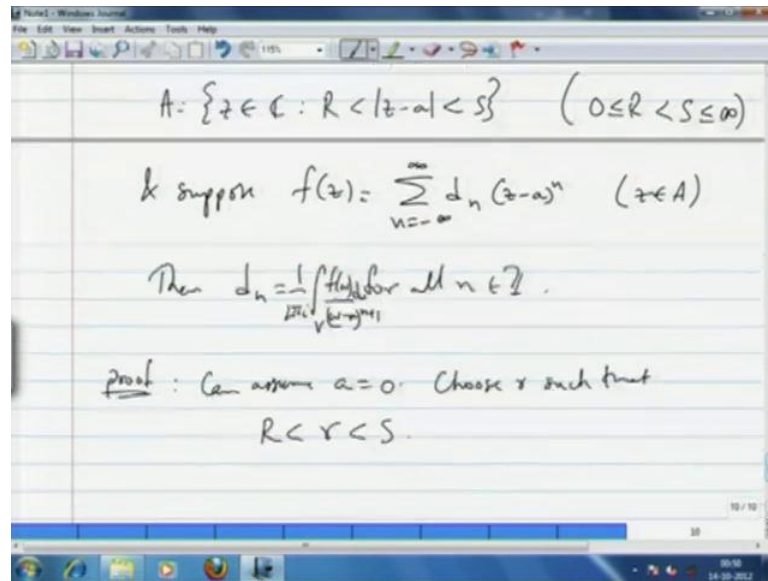 Note1 - Windows Journal
File Edit View Insert Actions Tools Help
115%
A: {z ∈ ℂ : R < |z-a| < S} (0 ≤ R < S ≤ ∞)
& suppose f(z) = ∑_{n=-∞}^{∞} d_n (z-a)^n (z ∈ A)
Then d_n = 1/2πi ∫_γ f(w)dw/(w-a)^{n+1} for all n ∈ ℤ.
proof : Can assume a=0. Choose r such that
R < r < S.
10 / 10
10
00:50
14-10-2012